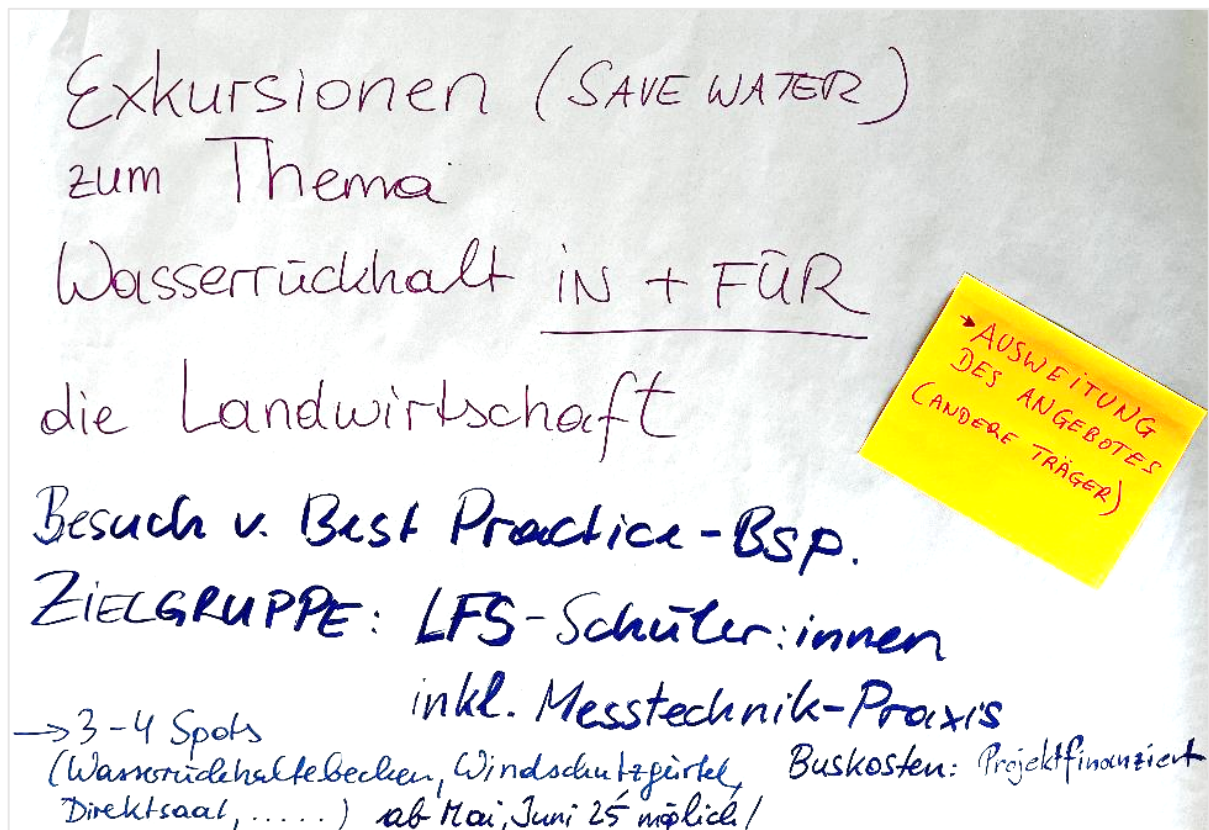 Exkursionen (SAVE WATER)
zum Thema
Wasserrückhalt IN + FÜR
die Landwirtschaft
→ AUSWEITUNG
DES ANGEBOTES
(ANDERE TRÄGER)
Besuch v. Best Practice-Bsp.
ZIELGRUPPE: LFS-Schüler:innen
inkl. Messtechnik-Praxis
→ 3-4 Spots
(Wasserrückhaltebecken, Windschutzgürtel,
Direktsaat, .....) ab Mai, Juni 25 möglich!
Buskosten: Projektfinanziert